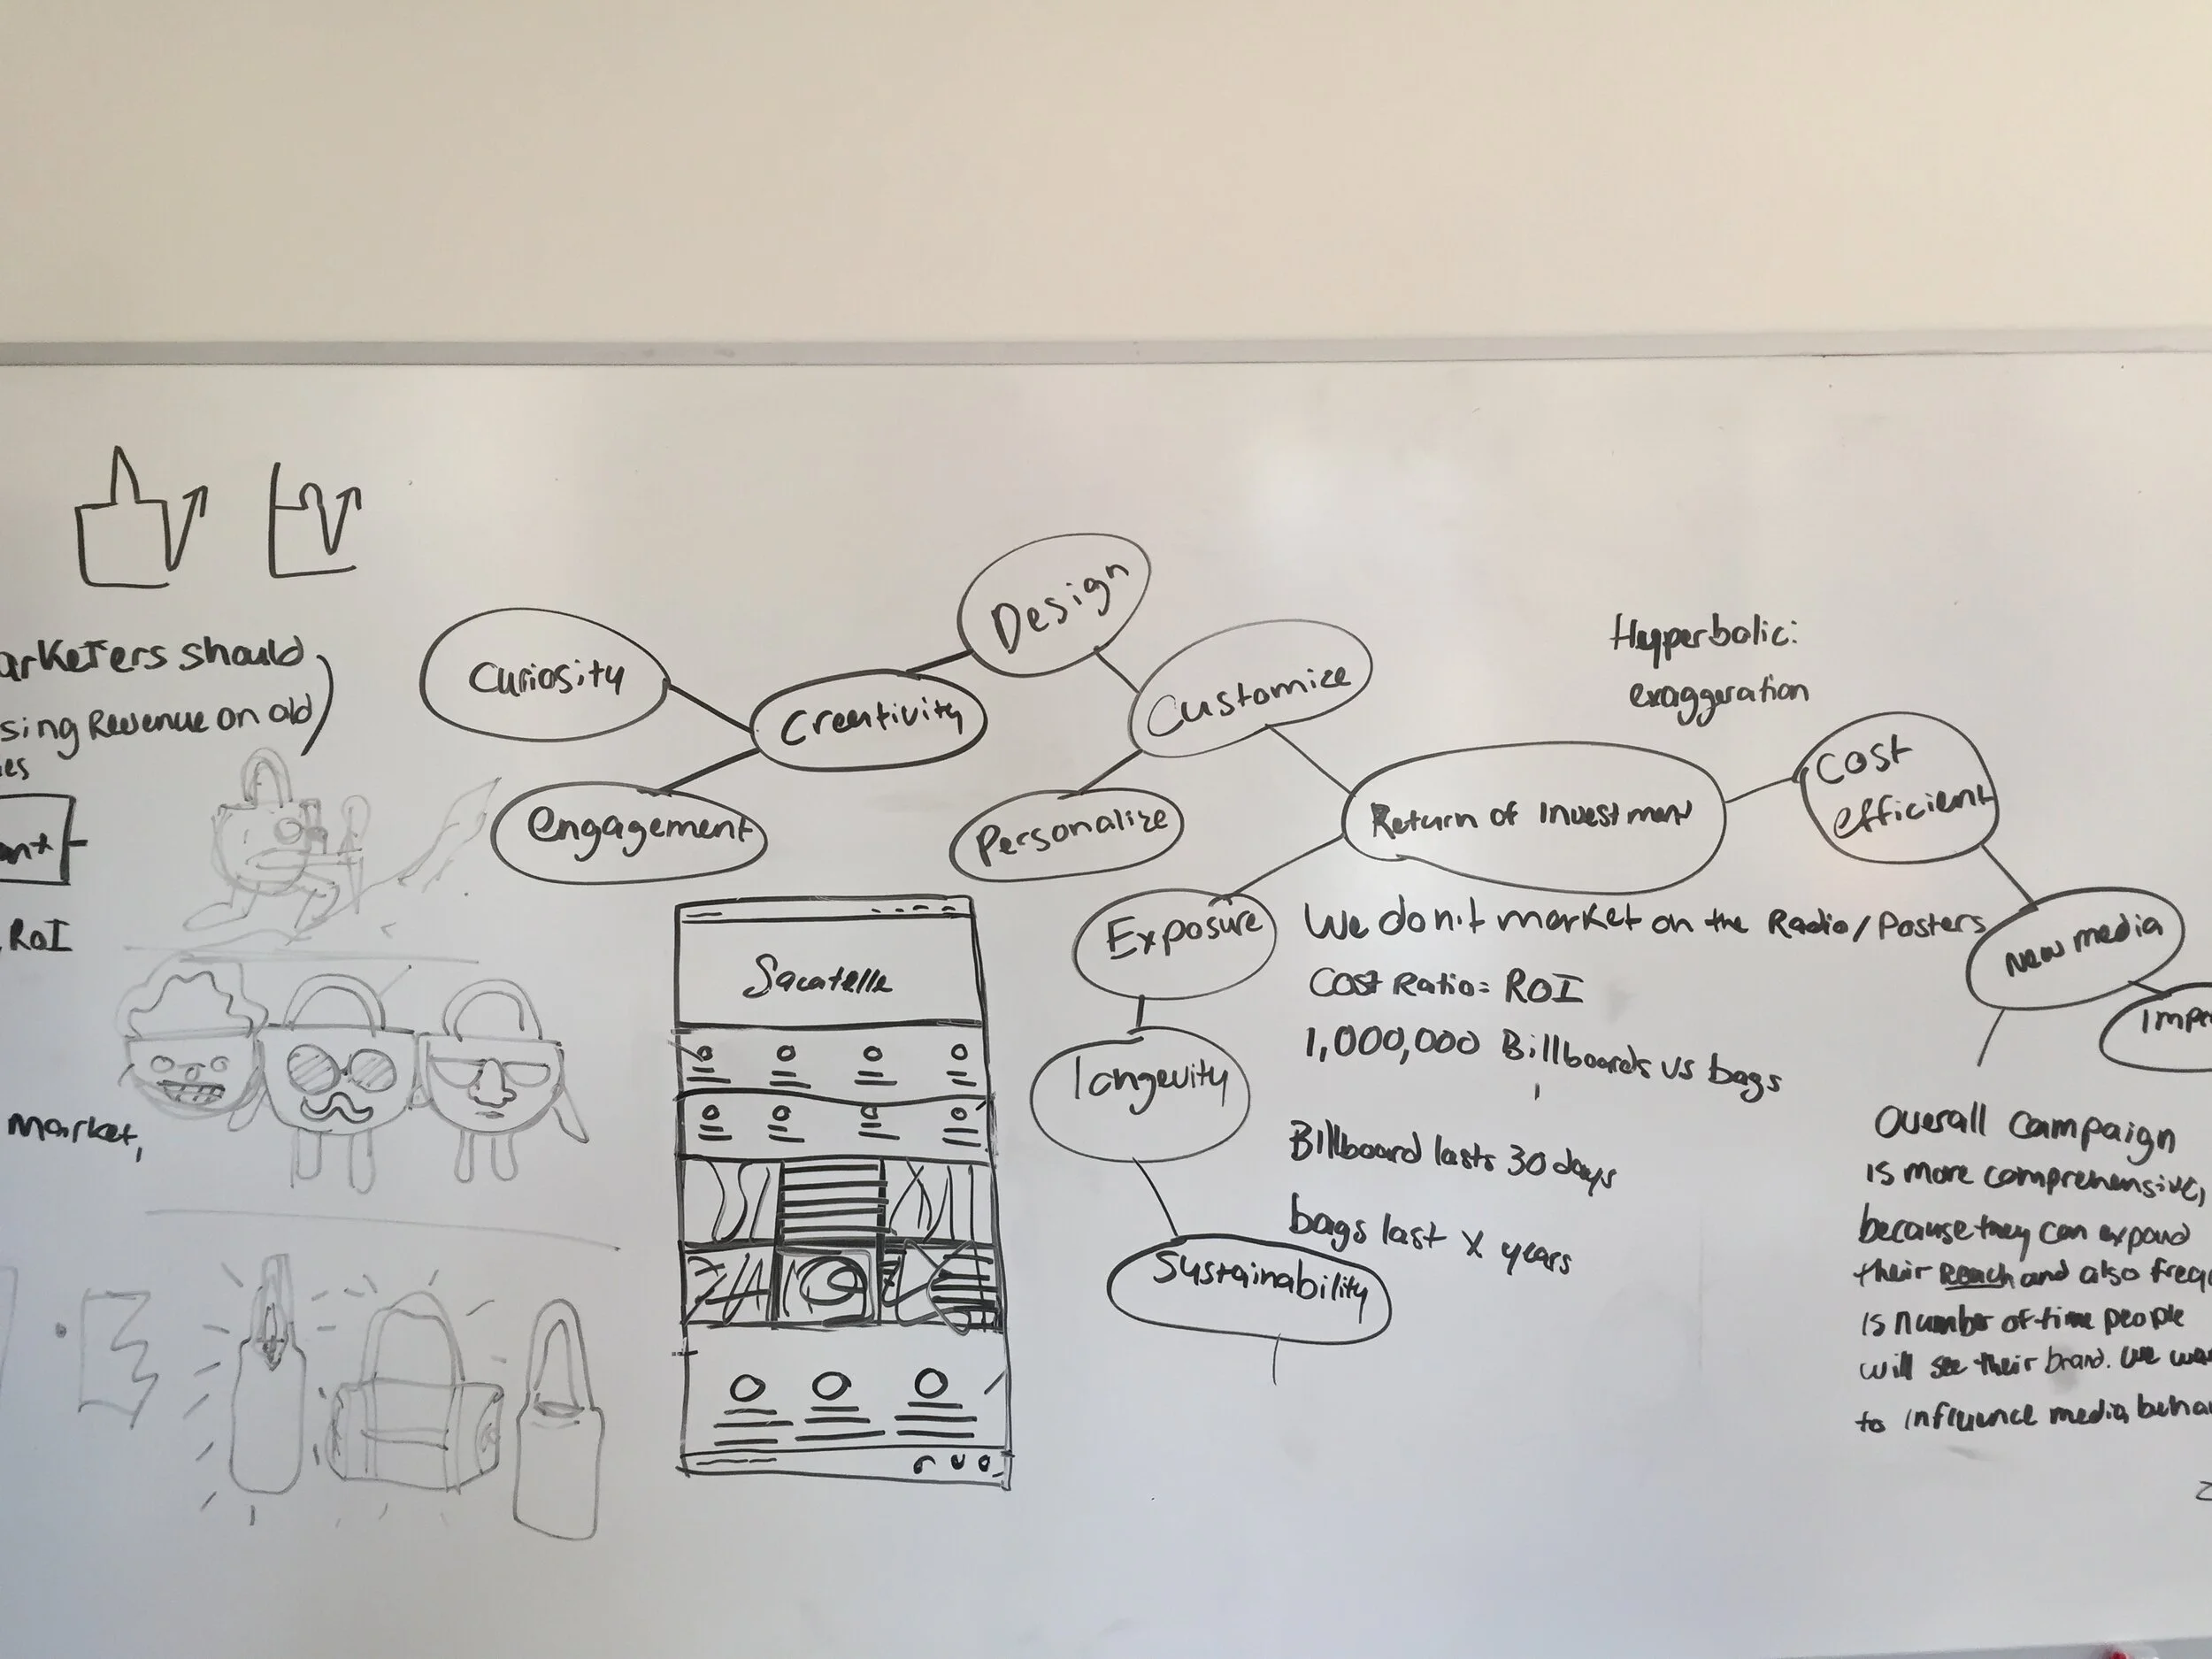 arketers should
sing Revenue on old
es
RoI
market,
Curiosity
Creativity
engagement
Design
Customize
Personalize
Return of Investment
Hyperbolic:
exaggeration
Cost
efficient
New media
Impr
Exposure
longevity
Sustainability
Sacatelle
We don't market on the Radio/Posters
Cost Ratio= ROI
1,000,000 Billboards vs bags
Billboard lasts 30 days
bags last x years
Overall Campaign
is more comprehensive,
because they can expand
their Reach and also freq
is number of time people
will see their brand. We wa
to influence media behav